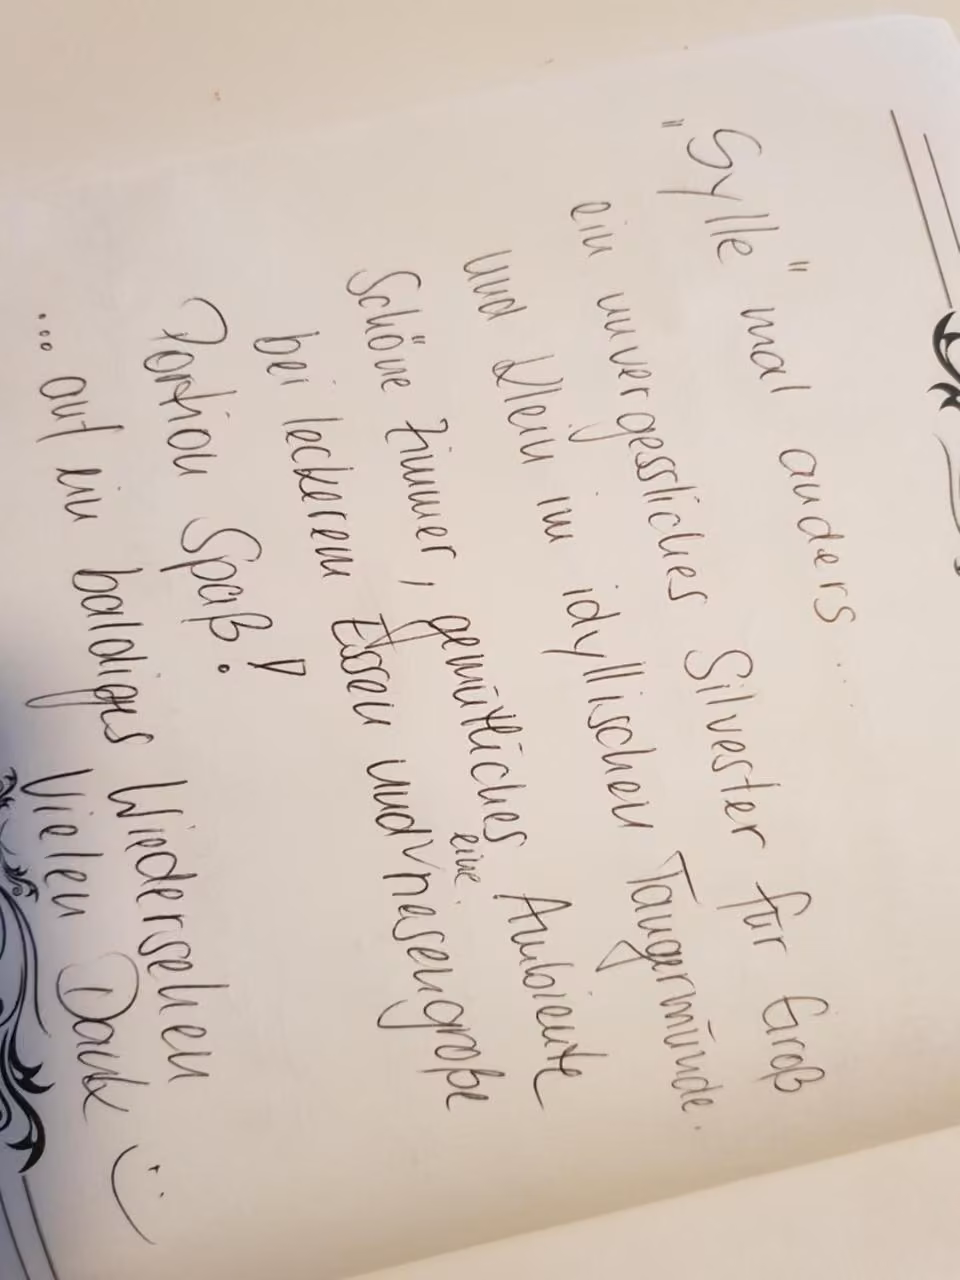 "Sylle" mal anders...
ein unvergessliches Silvester für Groß
und Klein im idyllischen Tangermünde.
Schöne Zimmer, gemütliches Ambiente
bei leckerem Essen und eine riesengroße
Portion Spaß!
... auf ein baldiges Wiedersehen
Vielen Dank :)